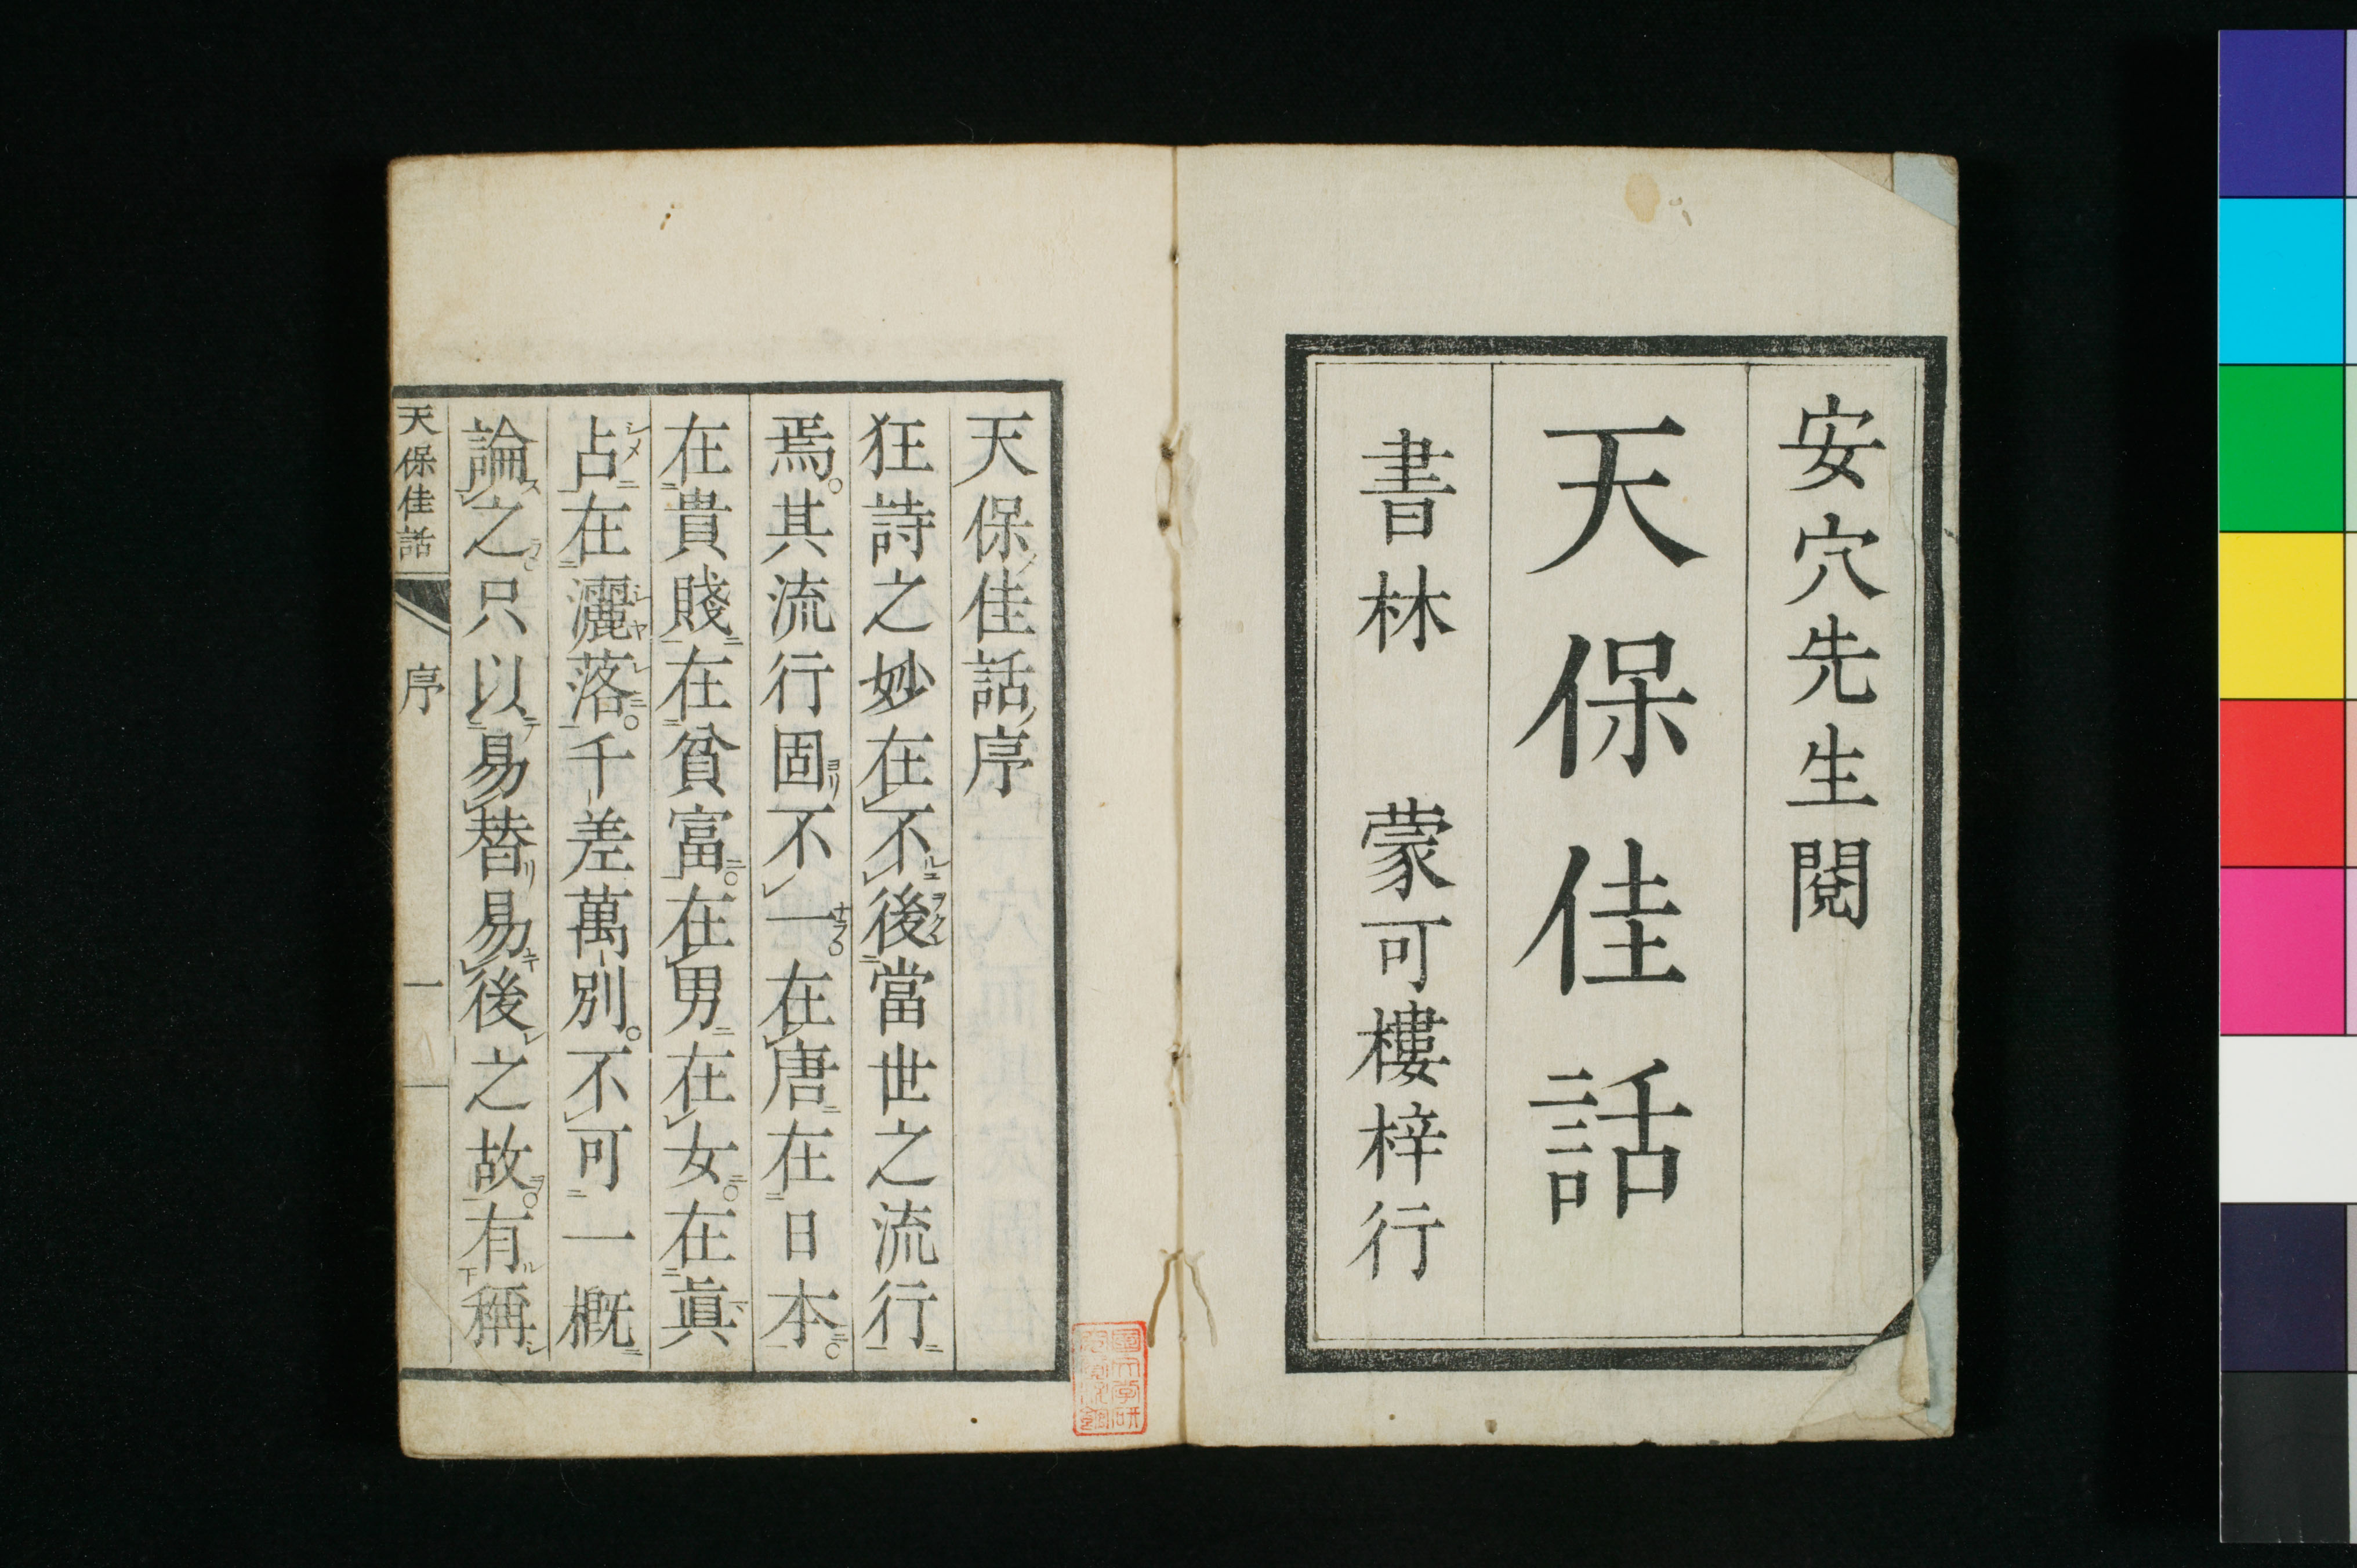 安穴先生閱
天保佳話
書林 蒙可樓梓行
天保佳話序
狂詩之妙在不後當世之流行
焉其流行固不一在唐在日本
在貴賤在貧富在男在女在眞
占在灑落千差萬別不可一概
論之只以易替易後之故有稱
天保佳話 序 一